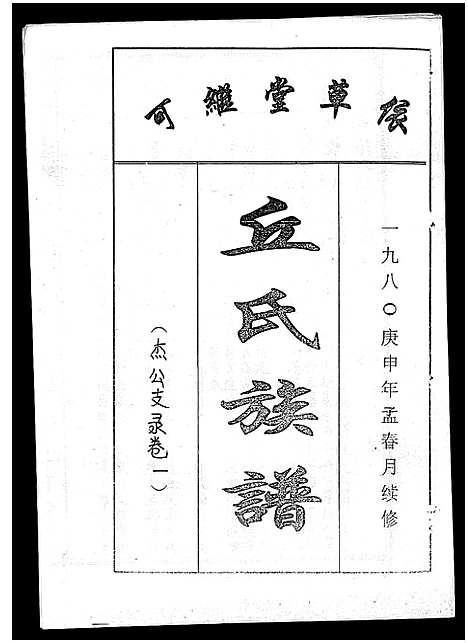 草堂继
一九八〇庚申年孟春月续修
丘氏族譜
（杰公支录卷一）